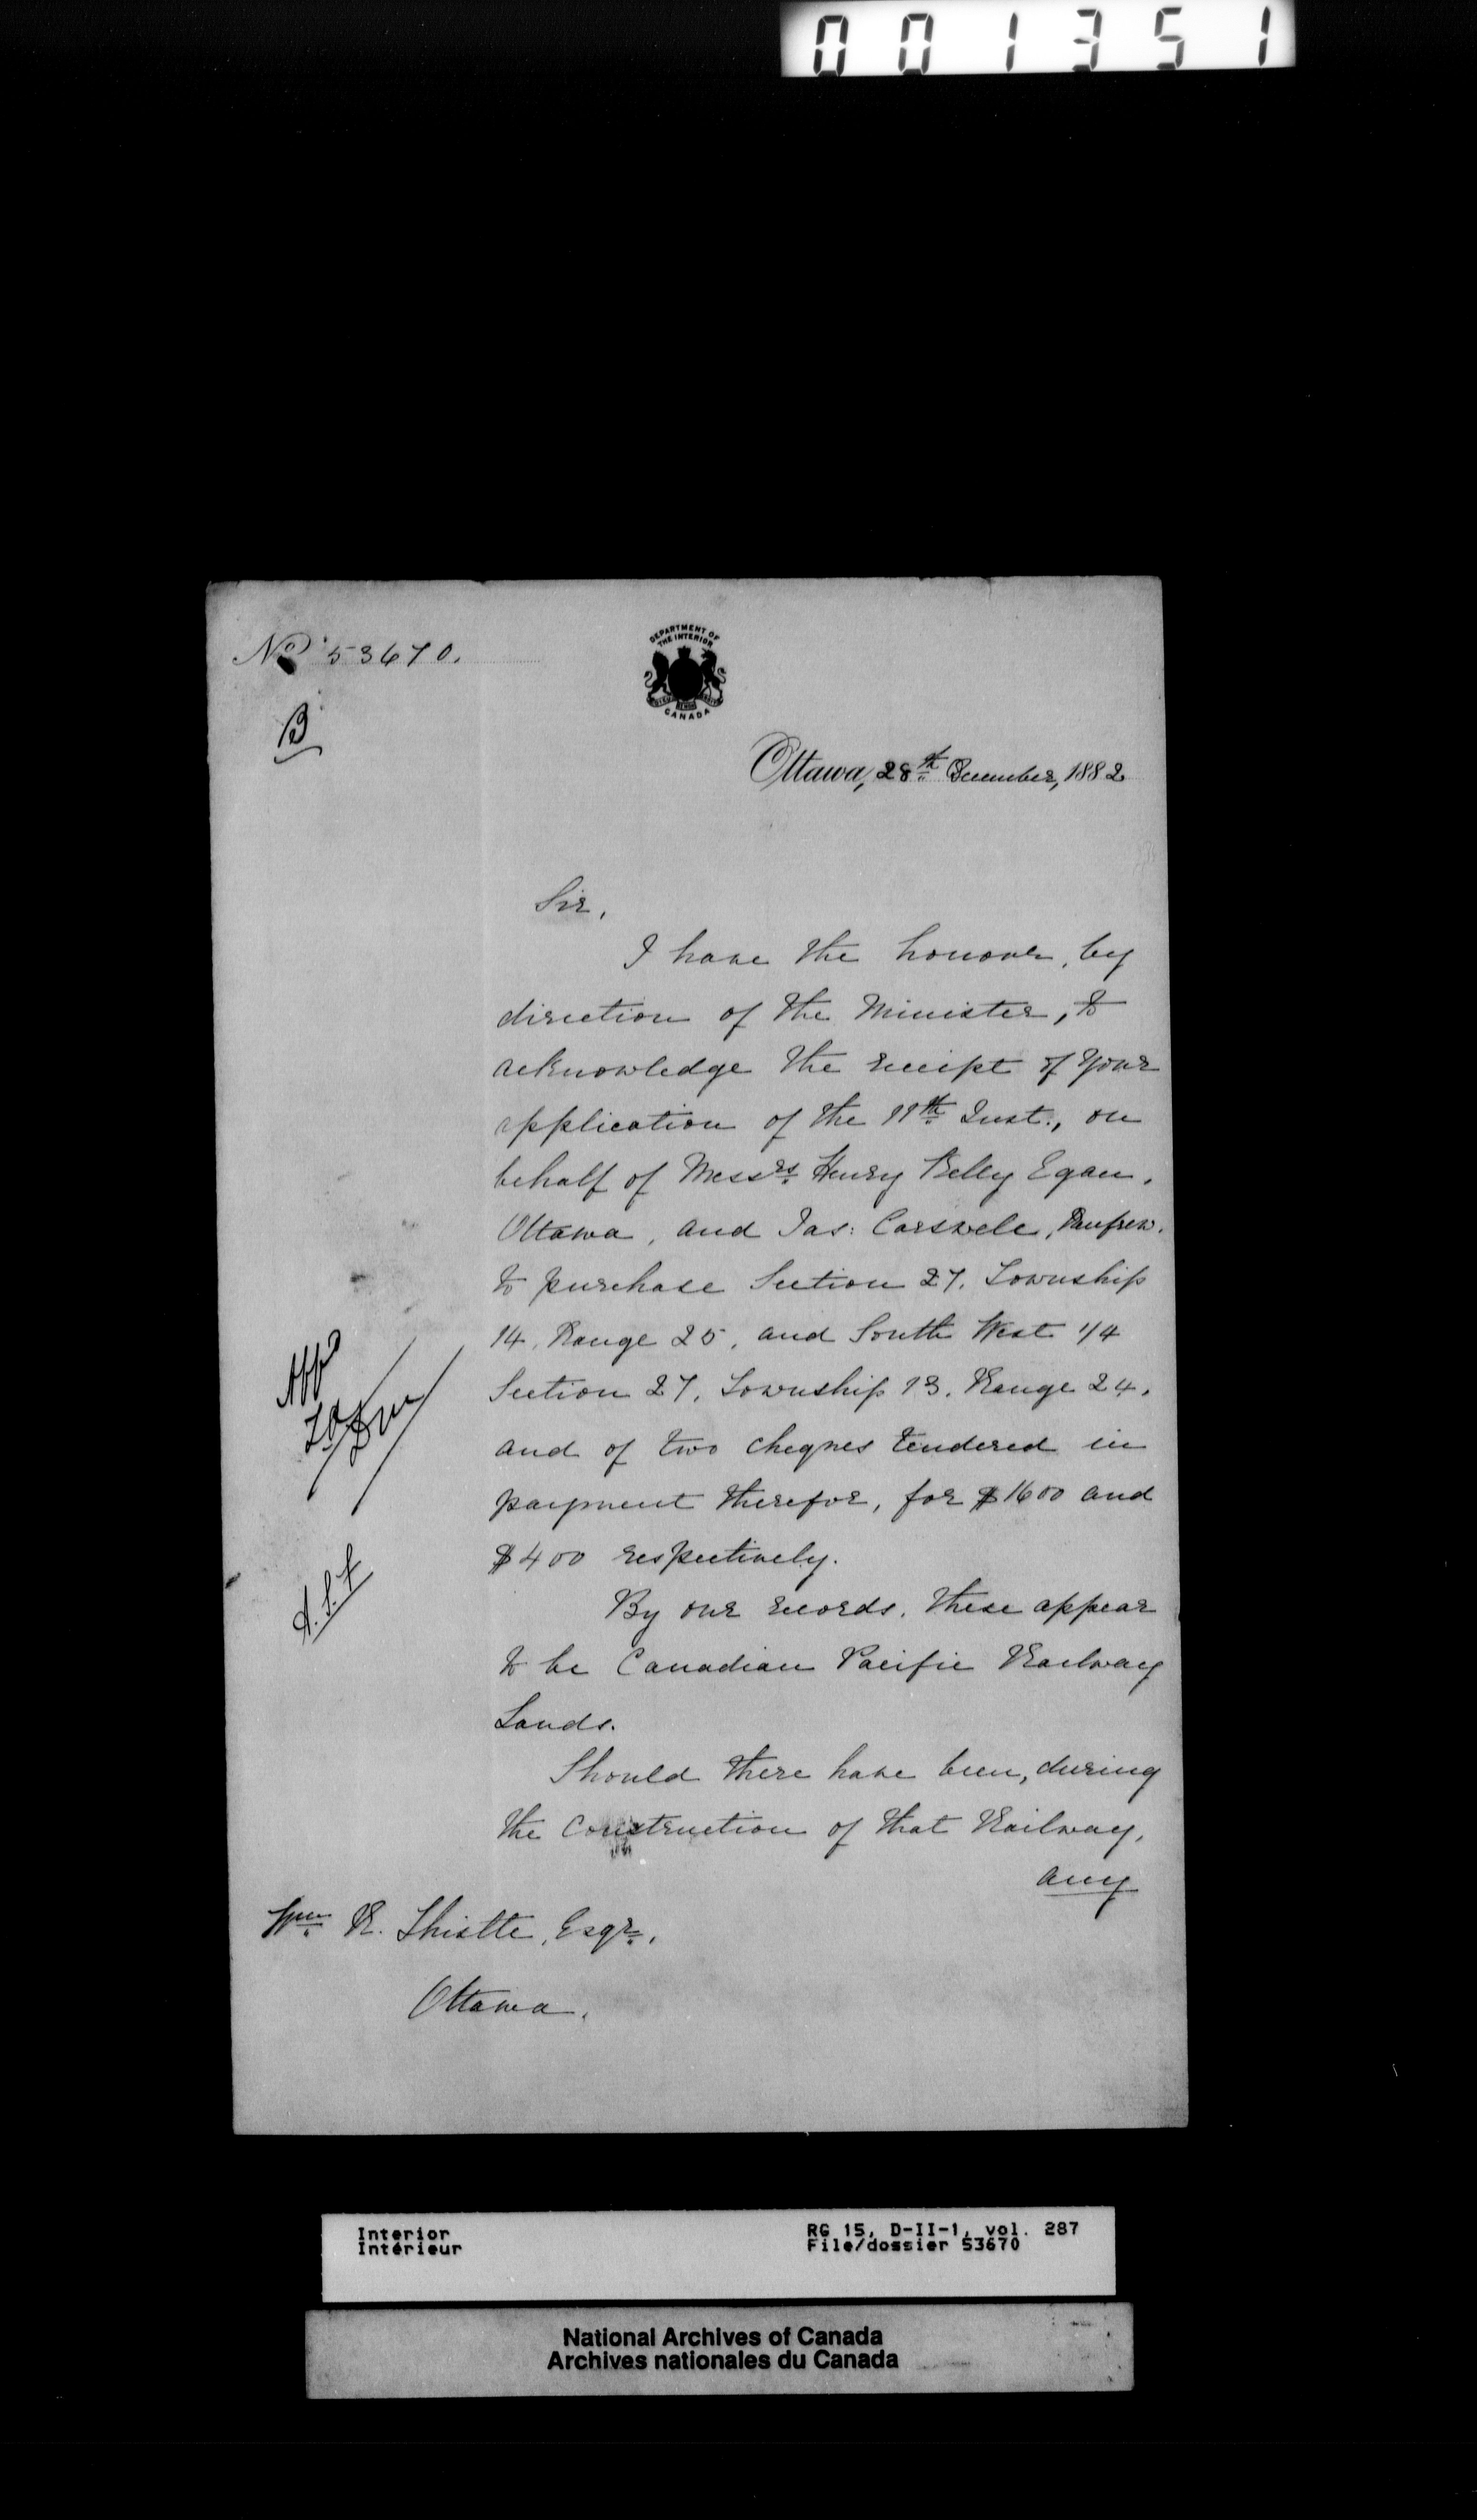 001351
No 53670.
DEPARTMENT OF
THE INTERIOR
CANADA
B
Ottawa, 28th December, 1882
Sir,
I have the honour, by
direction of the Minister, to
acknowledge the receipt of your
application of the 11th Inst., on
behalf of Messrs Henry Kelly Egan,
Ottawa, and Jas: Carswell, Renfrew,
to purchase Section 27, Township
14, Range 25, and South West 1/4
Section 27, Township 13, Range 24,
and of two cheques tendered in
payment therefor, for $1600 and
$400 respectively.
By our records, these appear
to be Canadian Pacific Railway
Lands.
Should there have been, during
the construction of that Railway,
any
Wm R. Thistle, Esqr.,
Ottawa.
Interior
Intérieur
RG 15, D-II-1, vol. 287
File/dossier 53670
National Archives of Canada
Archives nationales du Canada